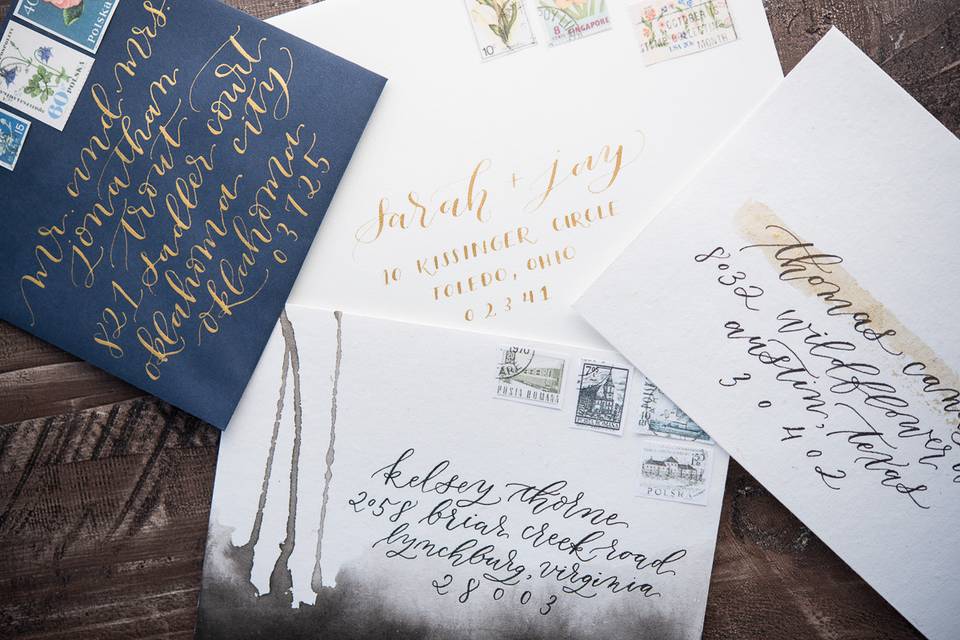 40
POLSKA
60
POLSKA
15
mr. and mrs.
jonathan
trout
821 sadler court
oklahoma city
oklahoma
03125
10
8
SINGAPORE
OCTOBER
MONTH
sarah + jay
10 KISSINGER CIRCLE
TOLEDO, OHIO
02341
1970
POSTA ROMANA
POSTA ROMANA
POLSKA
kelsey thorne
2058 briar creek road
lynchburg, virginia
28003
thomas
8032 wildflower
austin, texas
30402